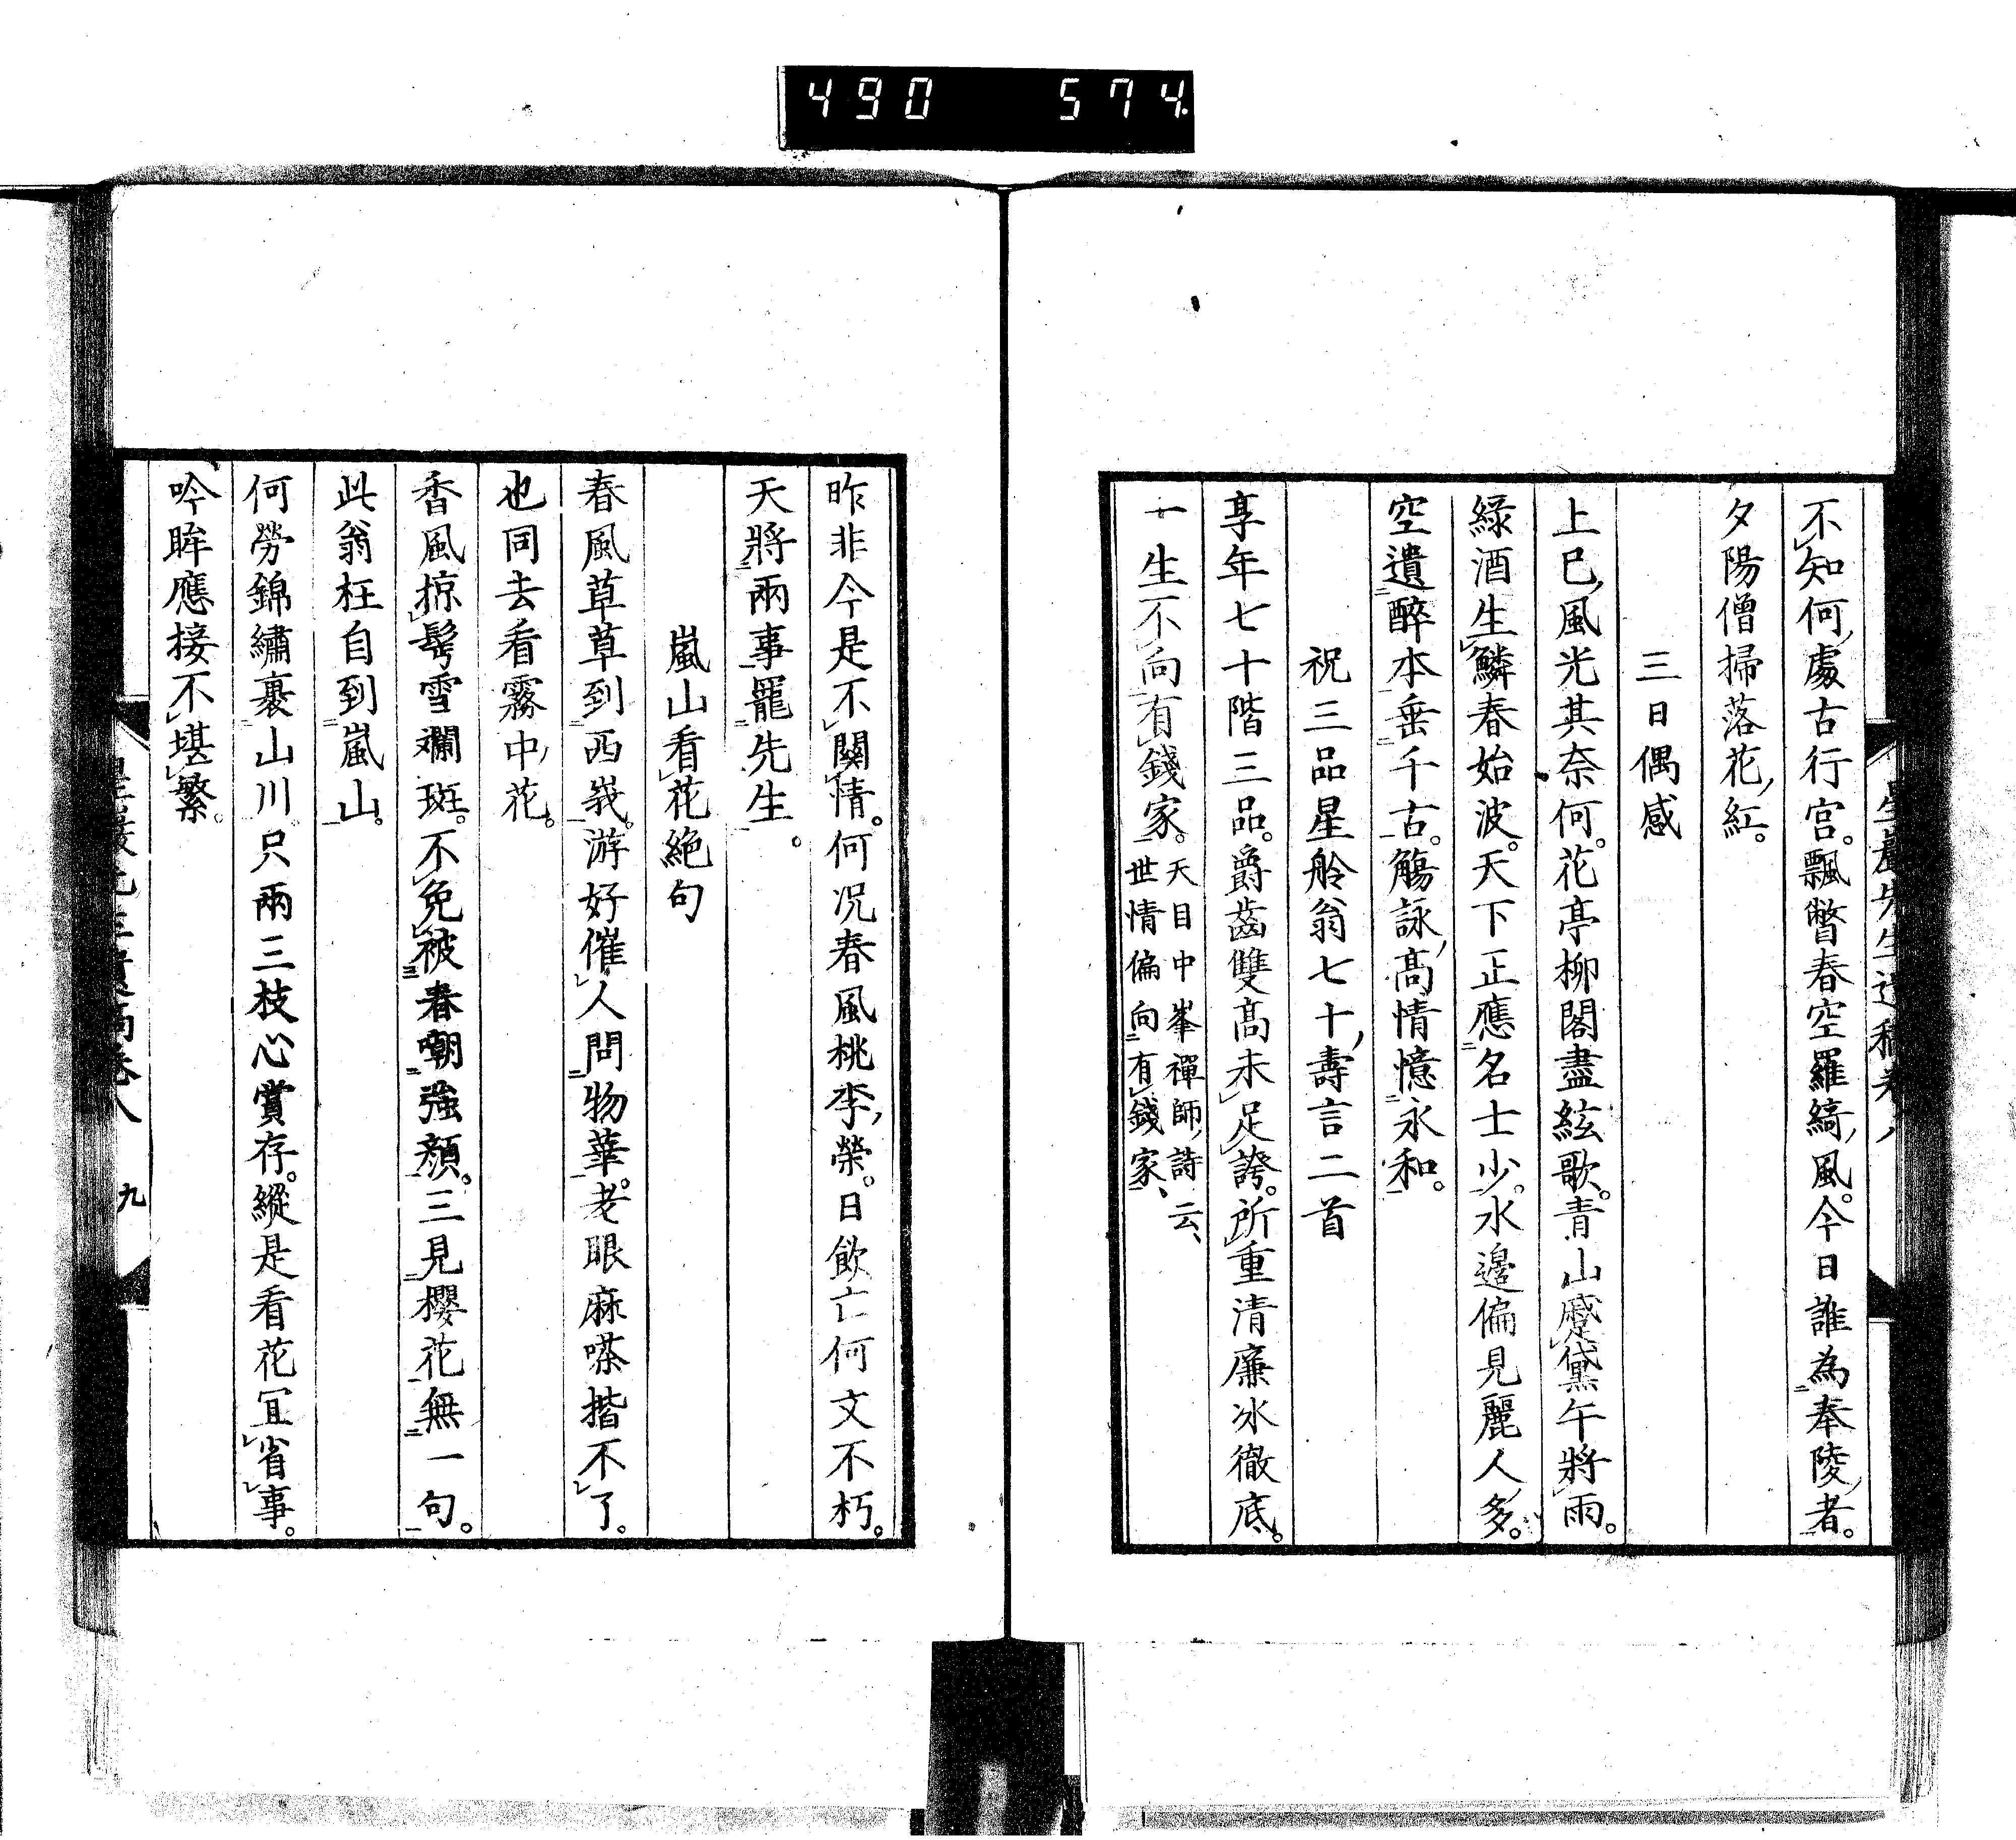 490 574
不知何處古行宮。飄瞥春空羅綺風。今日誰為奉陵者。
夕陽僧掃落花紅。
三日偶感
上巳風光其奈何。花亭柳閣盡絃歌。青山蹙黛午將雨。
綠酒生鱗春始波。天下正應名士少。水邊偏見麗人多。
空遺醉本垂千古。觴詠高情憶永和。
祝三品星舲翁七十壽言二首
享年七十階三品。爵齒雙高未足誇。所重清廉冰徹底。
一生不向有錢家。天目中峯禪師詩云、
世情偏向有錢家、
昨非今是不關情。何況春風桃李榮。日飲亡何文不朽。
天將兩事罷先生。
嵐山看花絕句
春風草草到西峩。游好催人問物華。老眼麻嗏揩不了。
也同去看霧中花。
香風掠鬢雪斕斑。不免被春嘲強顏。三見櫻花無一句。
此翁枉自到嵐山。
何勞錦繡裹山川只兩三枝心賞存。縱是看花宜省事。
吟眸應接不堪繁。
九